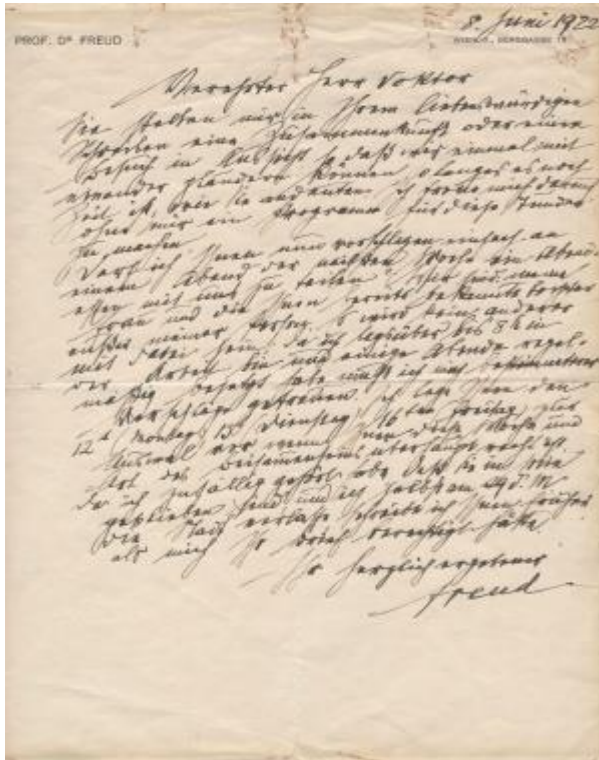 8. Juni 1922
PROF. Dr FREUD WIEN, IX., BERGGASSE 19
Verehrter Herr Doktor
Sie stellen mir in Ihrem liebenswürdigen
Schreiben eine Zusammenkunft oder einen
Besuch in Aussicht, daß wir einmal mit
einander plaudern können, solange es noch
Zeit ist, wie Sie andeuten. Ich freue mich darauf
ohne mir ein Programm für diese Stunden
zu machen.
Darf ich Ihnen nun vorschlagen einfach an
einem Abend der nächsten Woche ein Abend-
essen mit uns zu teilen? Es sind meine
Frau und die Ihnen bereits bekannte Tochter
außer meiner Person. Es wird kein anderer
mit dabei sein. Da ich tagsüber bis 8 in
der Arbeit bin und einige Abende regel-
mäßig besetzt habe muß ich noch bestimmtere
Vorschläge. Ich lege Ihnen den
12t Montag, 13t Dienstag, 16ten Freitag zur
Auswahl vor wenn Ihnen diese Woche und
Art des Beisammenseins überhaupt recht ist
Da ich zufällig gehört habe daß Sie in Wien
geblieben sind und ich selbst am d. M
die Stadt verlasse schreibe ich Ihnen früher
als mich Ihr Brief berechtigt hätte.
Ihr herzlich ergebener
Freud